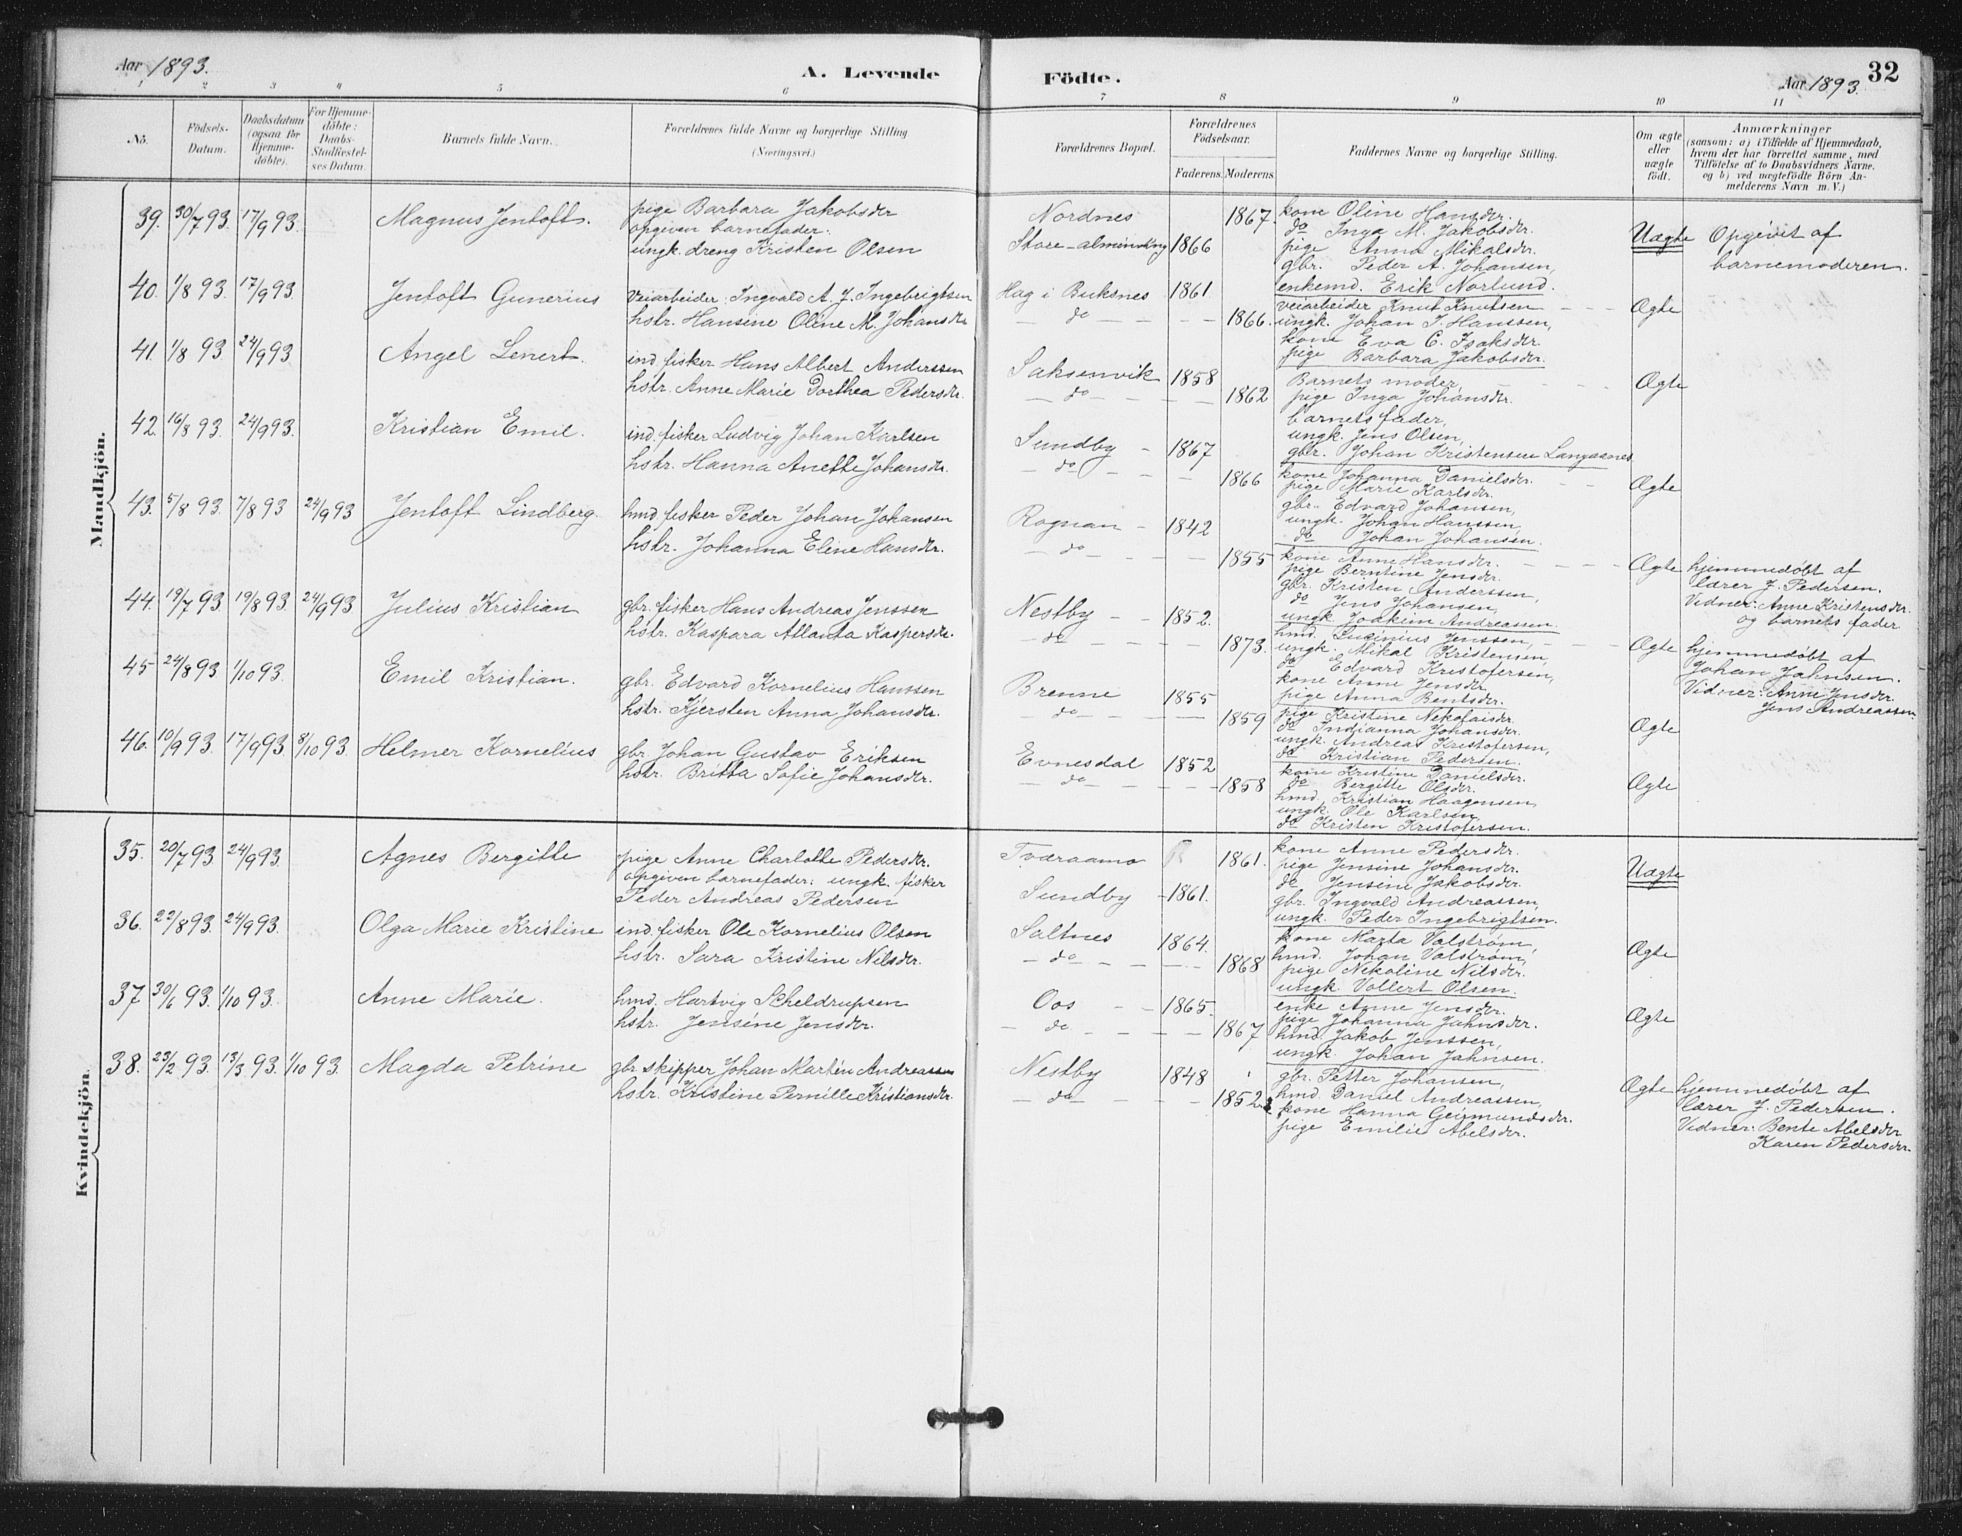 Aar 1893.
A. Levende Födte.
Aar 1893.
32
1 2 3 4 5 6 7 8 9 10 11
No.
Födsels-Datum.
Daabsdatum (ogsaa for Hjemmedöbte).
For Hjemmedöbte: Daabs-Stadfæstelses Datum.
Barnets fulde Navn.
Forældrenes fulde Navne og borgerlige Stilling (Næringsvei.)
Forældrenes Bopæl.
Forældrenes Födselsaar.
Faderens. Moderens.
Faddernes Navne og borgerlige Stilling.
Om ægte eller uægte födt.
Anmærkninger
(saasom: a) i Tilfælde af Hjemmedaab,
hvem der har forrettet samme, med
Tilföielse af to Daabsvidners Navne,
og b) ved uægtefödte Börn Anmelderens Navn m. V.)
Mandkjön.
39. 30/7 93. 17/9 93. Magnus Jentoft.
pige Barbara Jakobsdr
opgiven barnefader:
ungk. dreng Kristen Olsen
Nordnes 1867.
Store-almenning 1866
kone Oline Hansdr.
do Inga M. Jakobsdr.
pige Anna Mikalsdr.
gbr. Peder A. Johansen,
enkemd. Erik Norlund.
Uægte
Opgivet af
barnemoderen.
40. 1/8 93. 17/9 93. Jentoft Gunerius
Veiarbeider Ingvald A. J. Ingebrigtsen
hstr. Hansine Oline M. Johansdr
Hag i Buksnes 1861.
do 1866.
veiarbeider Knut Knutsen
ungk. Johan J. Hanssen,
kone Eva C. Isaksdr.
pige Barbara Jakobsdr.
Ægte
41. 1/8 93 24/9 93 Angel Lenert.
ind. fisker Hans Albert Anderssen
hstr. Anne Marie Dorthea Pedersdr.
Saksenvik 1858
do 1862
Barnets moder,
pige Inga Johansdr.
barnets fader,
ungk. Jens Olsen,
gbr. Johan Kristensen Langaasnes
Ægte
42. 16/8 93. 24/9 93. Kristian Emil.
ind. fisker Ludvig Johan Karlsen
hstr. Hanna Anette Johansdr.
Sundby - 1867
do 1866
kone Johanna Danielsdr.
pige Marie Karlsdr.
gbr. Edvard Johansen,
ungk. Johan Hanssen,
do Johan Johansen.
Ægte
43. 5/8 93. 7/8 93 24/9 93 Jentoft Lindberg.
hmd. fisker Peder Johan Johansen
hstr. Johanna Eline Hansdr.
Rognan - 1842
do 1855
kone Anne Hansdr.
pige Berntine Jensdr.
gbr. Kristen Anderssen,
do Jens Johansen,
ungk Joakim Andreassen.
Ægte
hjemmedøbt af
lærer J. Pedersen.
Vidner: Anne Kristensdr.
og barnets fader
44. 19/7 93. 19/8 93. 24/9 93 Julius Kristian
gbr. fisker Hans Andreas Jenssen
hstr. Kaspara Atlanta Kaspersdr.
Nestby - - 1852.
do 1873.
hmd. Lucinius Jenssen,
ungk. Mikal Kristensen,
do Edvard Kristofersen,
kone Anne Jensdr.
pige Anna Bentsdr.
Ægte
hjemmedøbt af
Johan Jahnsen.
Vidner: Anne Jensdr.
Jens Andreassen
45 24/8 93 1/10 93. Emil Kristian.
gbr. Edvard Kornelius Hanssen
hstr. Kjersten Anna Johansdr.
Brenne 1855
do 1859
pige Kristine Nekolaisdr.
do Indianna Johansdr.
ungk. Andreas Kristofersen,
do Kristian Pedersen.
Ægte
46. 10/9 93. 17/9 93 8/10 93. Helmer Kornelius
gbr. Johan Gustav Eriksen
hstr. Britta Sofie Johansdr.
Evnesdal 1852
do 1858
kone Kristine Danielsdr.
do Bergitte Olsdr.
hmd. Kristian Haagensen,
ungk Ole Karlsen,
do Kristen Kristofersen.
Ægte
Kvindekjön.
35. 20/7 93 24/9 93. Agnes Bergitte
pige Anne Charlotte Pedersdr.
opgiven barnefader: ungk. fisker
Peder Andreas Pedersen
Tværaamo 1861.
Sundby - 1861.
kone Anne Pedersdr.
pige Jensine Johansdr.
do Jensine Jakobsdr.
gbr. Ingvald Andreassen,
ungk Peder Ingebrigtsen.
Uægte
36. 22/8 93. 24/9 93. Olga Marie Kristine
ind. fisker Ole Kornelius Olsen
hstr. Sara Kristine Nilsdr.
Saltnes 1864.
do 1868
kone Marta Valstrøm,
hmd. Johan Valstrøm,
pige Nekoline Nilsdr.
ungk Vollert Olsen.
Ægte
37 30/6 93. 1/10 93. Anne Marie.
hmd. Hartvig Scheldrupsen
hstr. Jensine Jensdr.
Oos - - 1865.
do 1867
enke Anne Jensdr.
pige Johanna Jahnsdr.
hmd. Jakob Jenssen,
ungk. Johan Jahnsen.
Ægte
38. 23/2 93. 13/3 93. 1/10 93. Magda Petrine
gbr. skipper Johan Martin Andreassen
hstr. Kristine Pernille Kristiansdr.
Nestby 1848
do 1852
gbr. Petter Johansen,
hmd. Daniel Andreassen,
kone Hanna Geirmundsdr.
pige Emilie Abelsdr.
Ægte
hjemmedøbt af
lærer J. Pedersen.
Vidner: Bente Abelsdr
Karen Pedersdr.